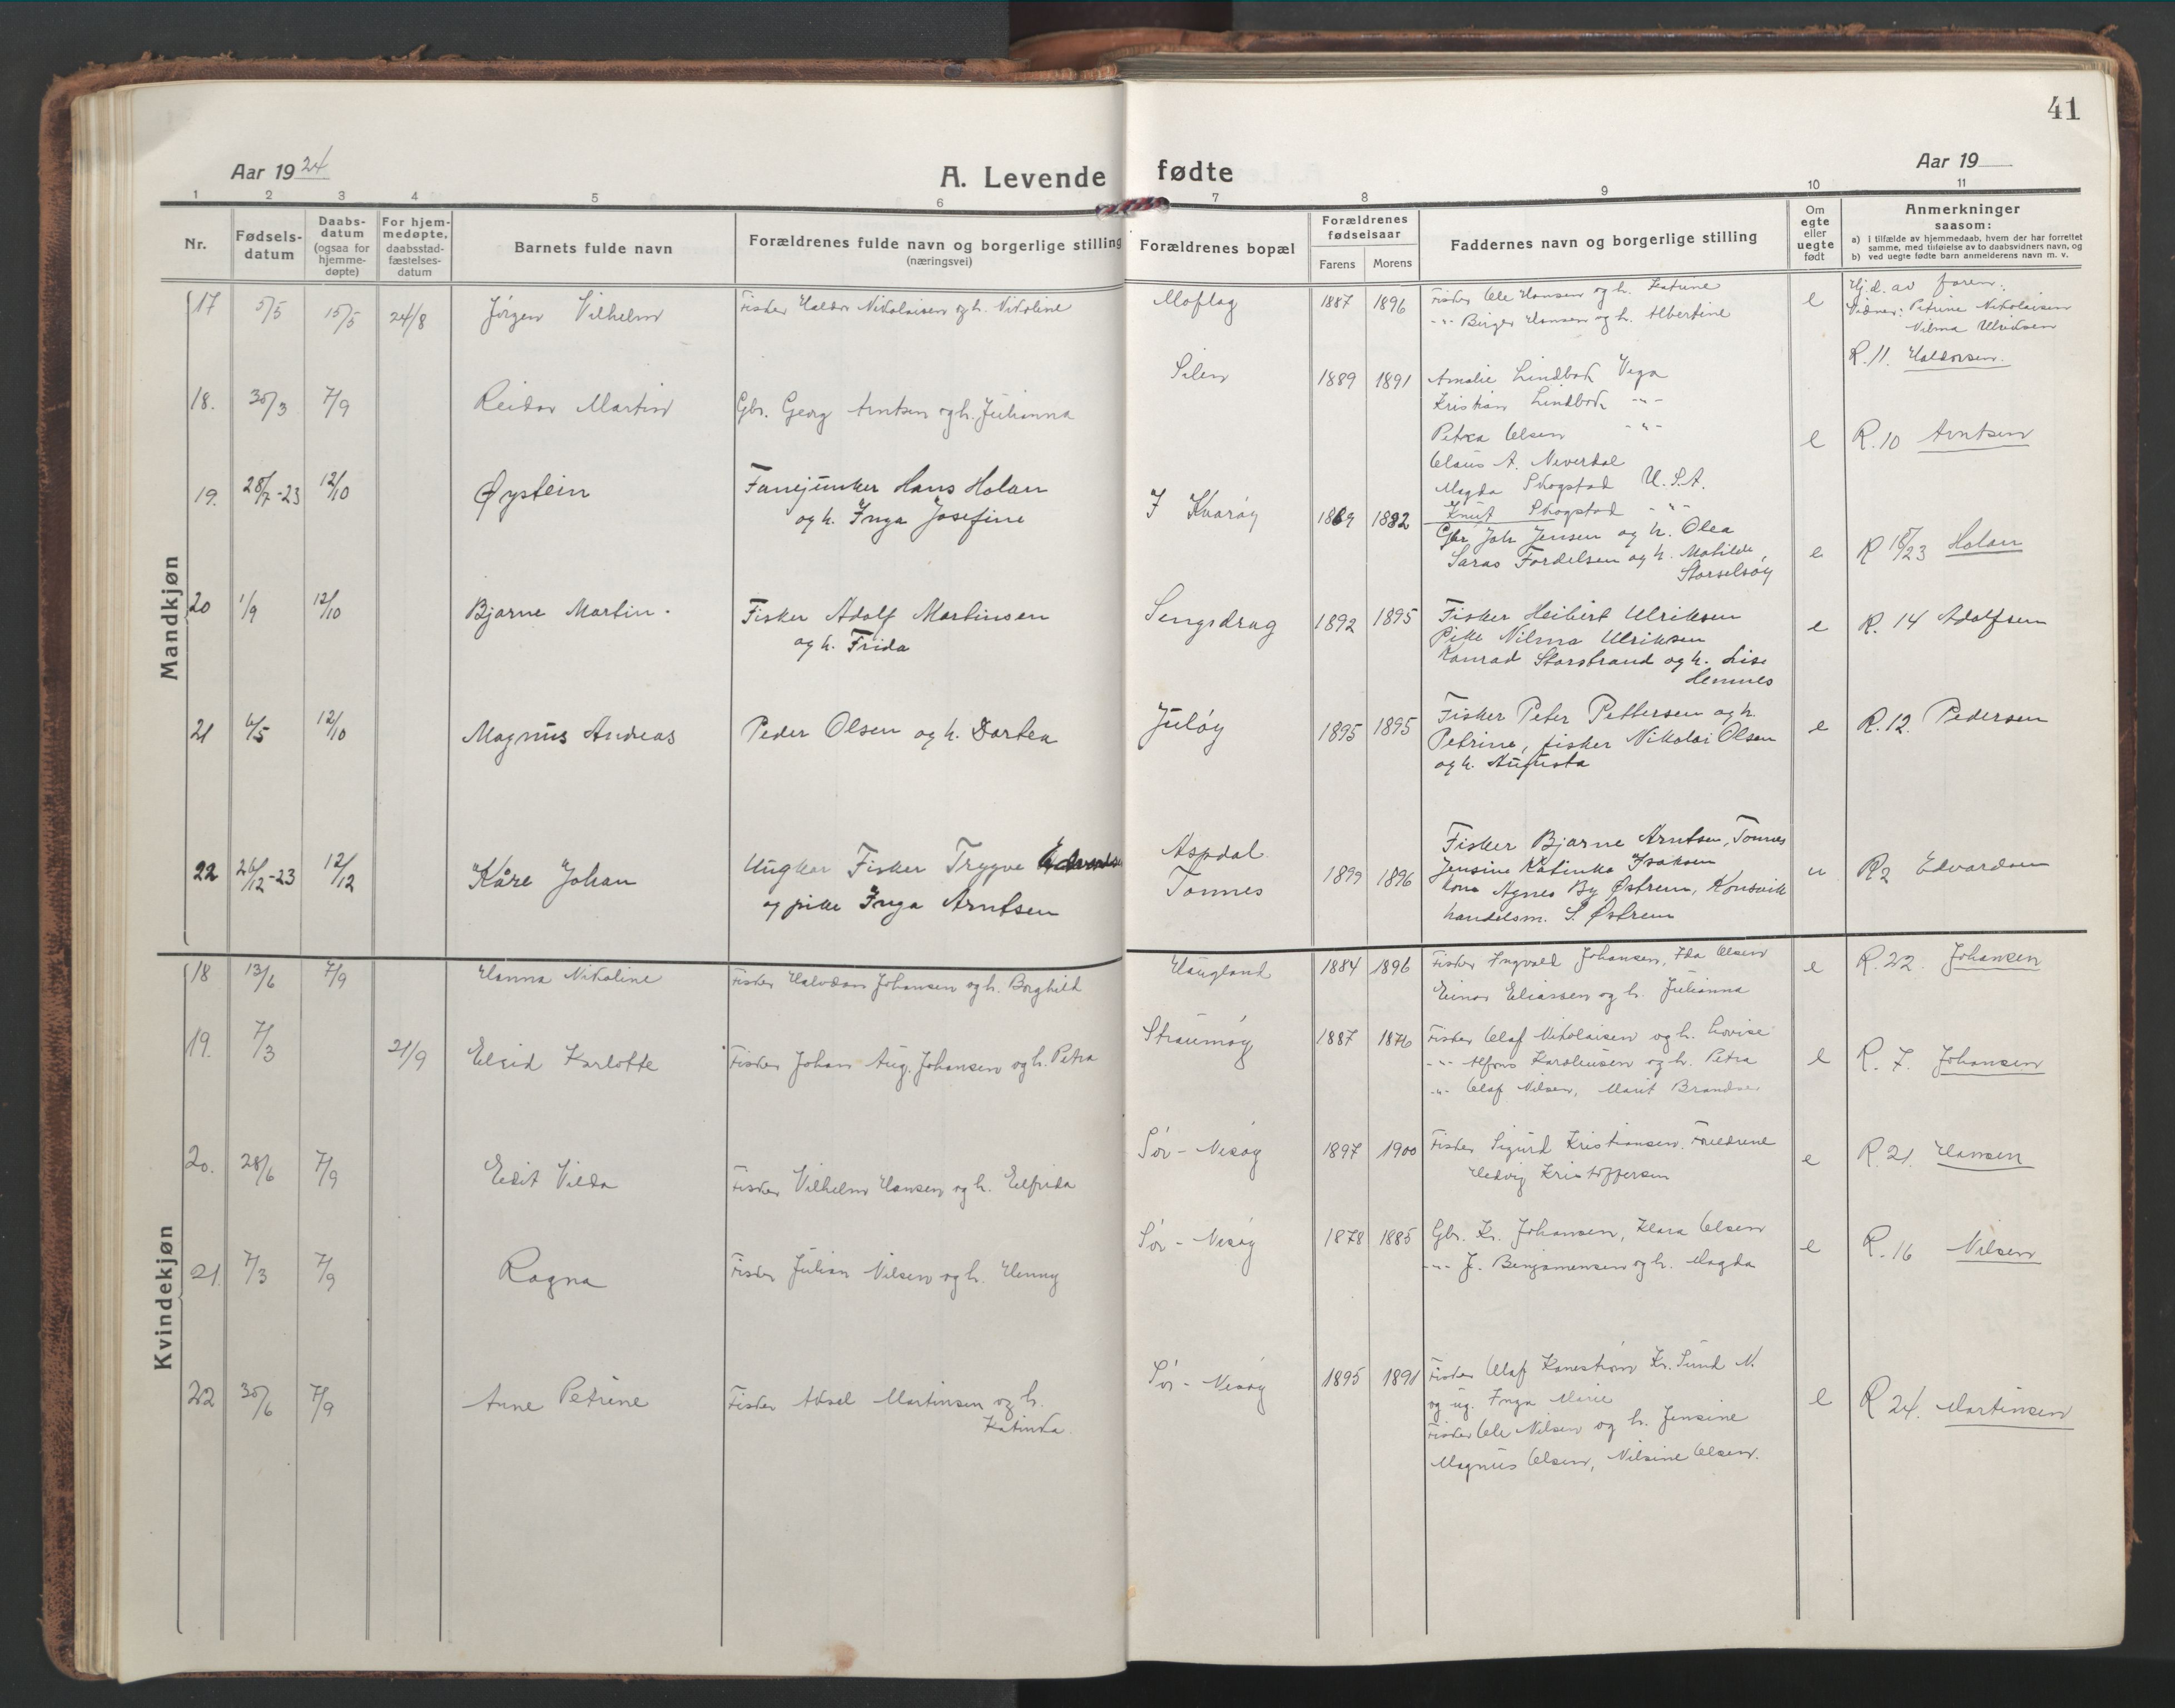 41
Aar 1924
A. Levende fødte
Aar 19
1 2 3 4 5 6 7 8 9 10 11
Nr.
Fødsels-
datum
Daabs-
datum
(ogsaa for
hjemme-
døpte)
For hjem-
medøpte,
daabsstad-
fæstelses-
datum
Barnets fulde navn
Forældrenes fulde navn og borgerlige stilling
(næringsvei)
Forældrenes bopæl
Forældrenes
fødselsaar
Farens Morens
Faddernes navn og borgerlige stilling
Om
egte
eller
uegte
født
Anmerkninger
saasom:
a) I tilfælde av hjemmedaab, hvem der har forrettet
samme, med tilføielse av to daabsvidners navn, og
b) ved uegte fødte barn anmelderens navn m. v.
Mandkjøn
17 5/5 15/5 24/8 Jørgen Vilhelm Fisker Haldor Nikolaisen og h. Nikoline Moflag 1887 1896 Fisker Ole Hansen og h. Katrine
-"- Birger Hansen og h. Albertine
e Hj.d. av faren.
Vidner: Petrine Nikolaisen
Vilma Ulriksen
R. 11. Haldorsen.
18. 30/3 7/9 Reidar Martin Gbr. Georg Arntsen og h. Julianna Silen 1889 1891 Amalie Lindbak Vega
Kristian Lindbak -"-
Petra Olsen -"-
Claus A. Neverdal
Magda Skogstad U.S.A.
Knut Skogstad -"-
e R. 10 Arntsen
19. 28/7-23 12/10 Øystein Fanejunker Hans Holan
og h. Inga Josefine
I Kvarøy 1869 1882 Gbr Joh Jensen og h. Olea
Saras Fordelsen og h. Matilde,
Storselsøy
e R 18/23 Holan
20 1/9 12/10 Bjarne Martin. Fisker Adolf Martinsen
og h. Frida
Sengsdrag 1892 1895 Fisker Heibert Ulriksen
Pike Nilma Ulriksen
Konrad Storstrand og h. Lise
Hemnes
e R. 14 Adolfsen
21 6/5 12/10 Magnus Andreas Peder Olsen og h. Dortea Juløy 1895 1895 Fisker Peter Pettersen og h.
Petrine, fisker Nikolai Olsen
og h. Augusta
e R. 12. Pedersen
22 26/12-23 12/12 Kåre Johan Ungkar Fisker Trygve Edvardsen
og pike Inga Arntsen
Aspdal
Tonnes
1899 1896 Fisker Bjarne Arntsen, Tonnes
Jensine Katinka Isaksen
kona Agnes By Østrem, Konsvik
handelsm. S. Østrem
u R2 Edvardsen
Kvindekjøn
18 13/6 7/9 Hanna Nikoline Fisker Halvdan Johansen og h. Borghild Haugland 1884 1896 Fisker Ingvald Johansen, Ida Olsen
Einar Eliassen og h. Julianna
e R. 22. Johansen
19. 7/3 21/9 Elsid Karlotte Fisker Johan Aug. Johansen og h. Petra Straumøy 1887 1876 Fisker Olaf Nikolaisen og h. Lovise
-"- Alfons Karoliussen og h. Petra
-"- Olaf Nilsen, Marit Brandser
e R. 7. Johansen
20. 28/6 7/9 Edit Vilda Fisker Vilhelm Hansen og h. Elfrida Sør-Nesøy 1897 1900 Fisker Sigurd Kristiansen. Foreldrene
Hedvig Kristoffersen
e R. 21. Hansen
21. 7/3 7/9 Ragna Fisker Julian Nilsen og h. Henny Sør-Nesøy 1878 1885 Gbr. Kr. Johansen, Klara Olsen
-"- J. Benjamensen og h. Magda
e R. 16 Nilsen
22 30/6 7/9 Anne Petrine Fisker Aksel Martinsen og h.
Katinka.
Sør-Nesøy 1895 1891 Fisker Olaf Kanestrøm Kr. Sund N.
og ug. Inga Marie
Fisker Ole Nilsen og h. Jensine
Magnus Olsen, Nilsine Olsen.
e R 24. Martinsen